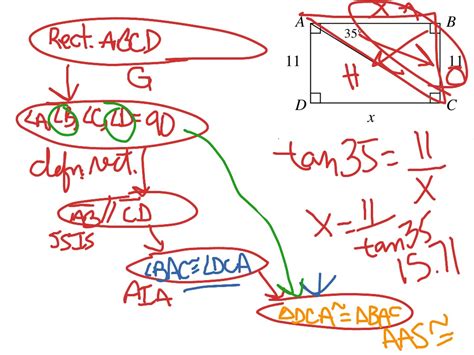 Rect. ABCD
G
∠A, ∠B, ∠C, ∠D = 90
defn. rect.
AB // CD
SSIS
∠BAC ≅ ∠DCA
AIA
ΔDCA ≅ ΔBAC
AAS ≅
X - A
A B
35°
11 11
H O
D C
x
tan 35 = 11/x
x = 11/tan 35
15.71